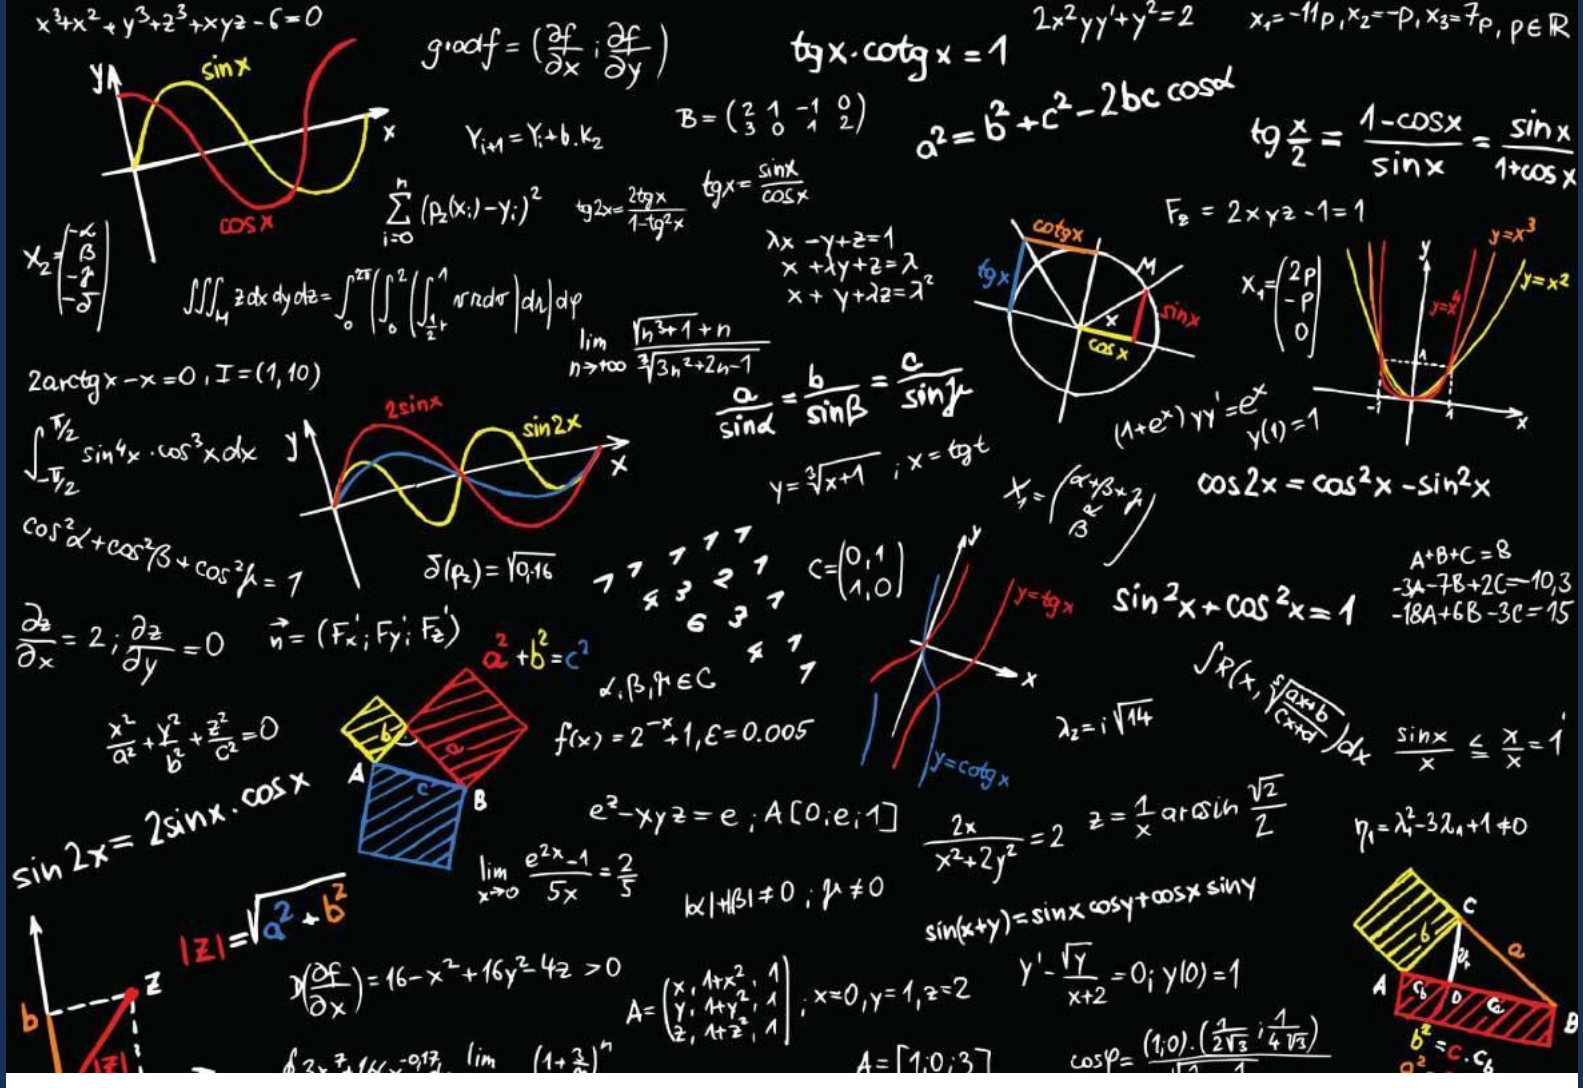 x³+x²+y³+z³+xyz-6=0
grad f = (∂f/∂x ; ∂f/∂y)
tgx.cotgx=1
2x²yy'+y²=2
x₁=-11p, x₂=-p, x₃=7p, p∈ℝ
y
sinx
x
cosx
Y_{i+1}=Y_i+b.k₂
B=(2 1 -1 0
3 0 1 2)
a²=b²+c²-2bc cosα
tg x/2 = (1-cosx)/sinx = sinx/(1+cosx)
n
∑ (p₂(x_i)-y_i)²
i=0
tg2x=2tgx/(1-tg²x)
tgx=sinx/cosx
F₂=2xyz-1=1
X₂=(-α
β
-γ
-δ)
λx-y+z=1
x+λy+z=λ
x+y+λz=λ²
cotgx
tgx
M
x
sinx
cosx
X₁=(2p
-p
0)
y
y=x³
y=x²
y=x⁴
1
-1
1
x
lim n→+∞ (√(n³+1)+n)/∛(3n²+2n-1)
2arctgx-x=0, I=(1,10)
a/sinα = b/sinβ = c/sinγ
(1+eˣ)yy'=eˣ
y(1)=1
∫_{-π/2}^{π/2} sin⁴x.cos³xdx
y
2sinx
sin2x
x
y=∛(x+1) ; x=tgt
X₁=(α+β+γ
α
β)
cos2x=cos²x-sin²x
cos²α+cos²β+cos²γ=1
δ(p₂)=√0,16
1 1 1 1 1
4 3 2 1
6 3 1
4 1
1
C=(0,1
1,0)
y
y=tgx
x
y=cotgx
sin²x+cos²x=1
A+B+C=8
-3A-7B+2C=-10,3
-18A+6B-3C=15
∂z/∂x=2; ∂z/∂y=0
n⃗=(Fx'; Fy; Fz')
a²+b²=c²
b
a
c
A
B
α,β,γ∈C
∫R(x, ⁵√((ax+b)/(cx+d)))dx
x²/a²+y²/b²+z²/c²=0
f(x)=2⁻ˣ+1, ε=0.005
λ₂=i√14
sinx/x ≤ x/x=1
sin2x=2sinx.cosx
e^z-xyz=e; A[0;e;1]
2x/(x²+2y²)=2
z=1/x arcsin √2/2
η₁=λ₁²-3λ₁+1≠0
lim x→0 (e²ˣ-1)/5x=2/5
|α|+|β|≠0 ; γ≠0
sin(x+y)=sinx cosy+cosx siny
|z|=√(a²+b²)
z
b
|z|
(∂f/∂x)=16-x²+16y²-4z>0
A=(x, 1+x², 1
y, 1+y², 1
z, 1+z², 1) ; x=0, y=1, z=2
y'-√y/(x+2)=0; y(0)=1
C
b
a
A
c_b
D
B
b²=c.c_b
a²
lim
A=[1;0;3]
cosφ=(1;0).(1/2√3 ; 1/4√3)